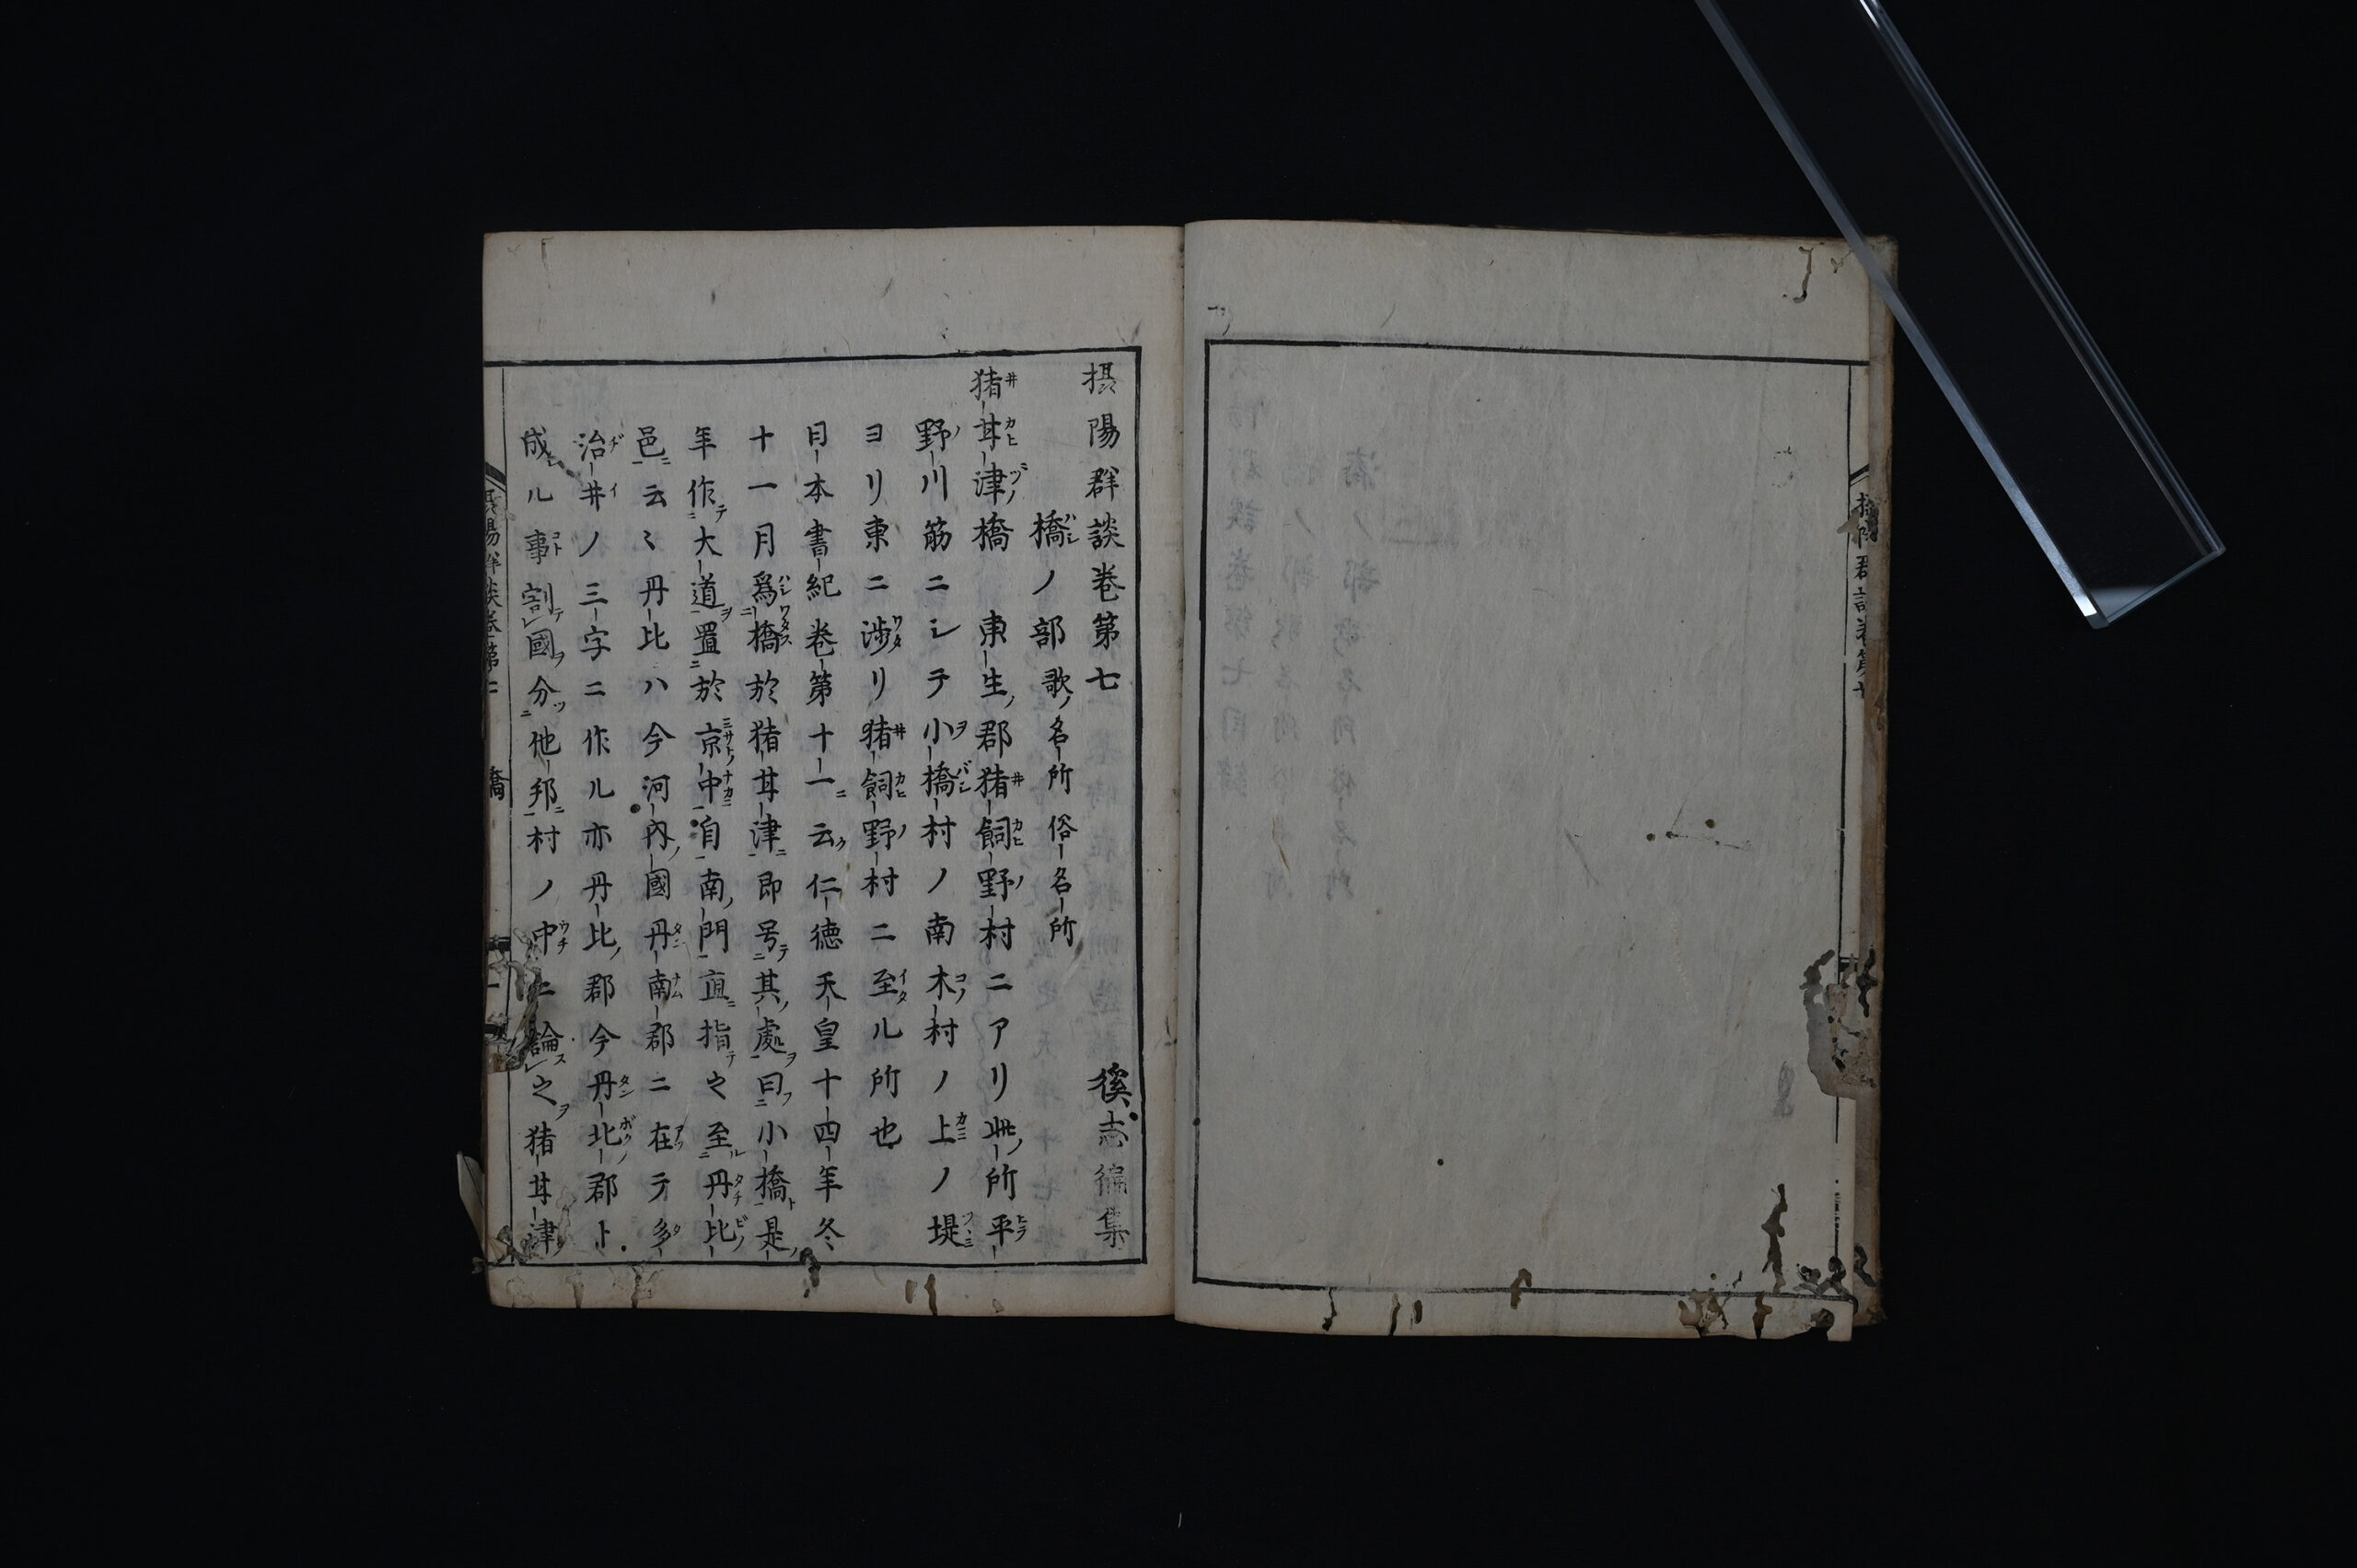 摂陽群談巻第七 徯志編集
橋ノ部 歌名所 俗名所
猪甘津橋 東生郡猪飼野村ニアリ此所平
野川筋ニシテ小橋村ノ南木村ノ上ノ堤
ヨリ東ニ渉リ猪飼野村ニ至ル所也
日本書紀巻第十一云仁徳天皇十四年冬
十一月為橋於猪甘津即号其處曰小橋是
年作大道置於京中自南門直指之至丹比
邑云〻丹比ハ今河内國丹南郡ニ在テ多
治井ノ三字ニ作ル亦丹比郡今丹北郡ト
成ル事割國分他邦村ノ中ニ論之猪甘津
橋